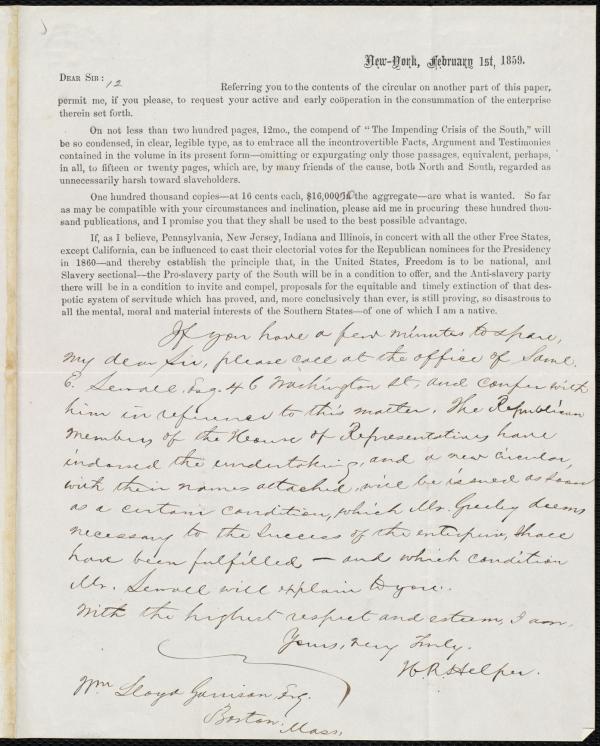 New-York, February 1st, 1859.
DEAR SIR:
12
Referring you to the contents of the circular on another part of this paper,
permit me, if you please, to request your active and early coöperation in the consummation of the enterprise
therein set forth.
On not less than two hundred pages, 12mo., the compend of "The Impending Crisis of the South," will
be so condensed, in clear, legible type, as to embrace all the incontrovertible Facts, Argument and Testimonies
contained in the volume in its present form—omitting or expurgating only those passages, equivalent, perhaps,
in all, to fifteen or twenty pages, which are, by many friends of the cause, both North and South, regarded as
unnecessarily harsh toward slaveholders.
One hundred thousand copies—at 16 cents each, $16,000 in the aggregate—are what is wanted. So far
as may be compatible with your circumstances and inclination, please aid me in procuring these hundred thou-
sand publications, and I promise you that they shall be used to the best possible advantage.
If, as I believe, Pennsylvania, New Jersey, Indiana and Illinois, in concert with all the other Free States,
except California, can be influenced to cast their electoral votes for the Republican nominees for the Presidency
in 1860—and thereby establish the principle that, in the United States, Freedom is to be national, and
Slavery sectional—the Pro-slavery party of the South will be in a condition to offer, and the Anti-slavery party
there will be in a condition to invite and compel, proposals for the equitable and timely extinction of that des-
potic system of servitude which has proved, and, more conclusively than ever, is still proving, so disastrous to
all the mental, moral and material interests of the Southern States—of one of which I am a native.
If you have a few minutes to spare,
my dear Sir, please call at the office of Saml.
E. Sewall, Esq. 46 Washington St, and confer with
him in reference to this matter. The Republican
members of the House of Representatives have
indorsed the undertaking, and a new circular,
with their names attached, will be issued as soon
as a certain condition, which Mr. Greeley deems
necessary to the success of the enterprise, shall
have been fulfilled — and which condition
Mr. Sewall will explain to you.
With the highest respect and esteem, I am,
Yours, very truly,
H. R. Helper.
Wm Lloyd Garrison, Esq.
Boston.
Mass.